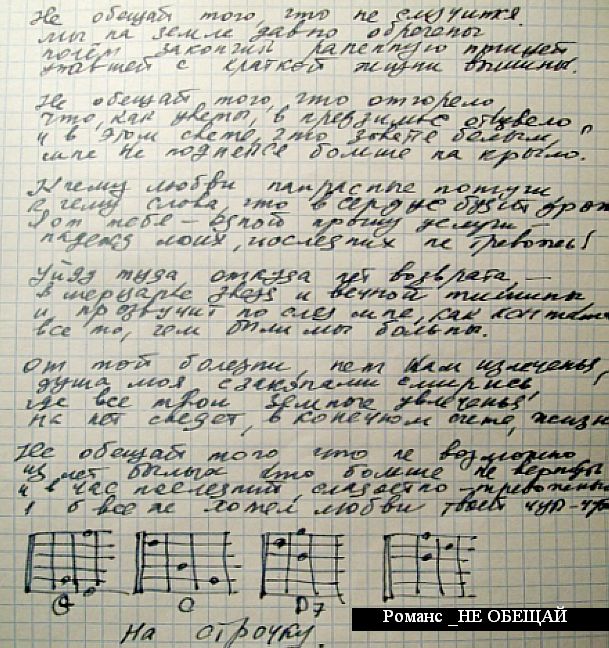 Не обещай того, что не случится
мы на земле давно обречены
уставшей с краткой жизни вышины.
Не обещай того, что отгорело,
что, как цветы, в предзимье отцвело
и в этом свете, что зовёте белым,
мне не подняться больше на крыло.
К чему любви напрасные потуги,
к чему слова, что в сердце будят дрожь
Я от тебя – одной прошу услуги –
надежд моих, последних не тревожь!
Уйду туда откуда нет возврата, –
в мерцанье звёзд и вечной тишины
и прозвучит после мне, как
все то, чем были мы больны.
От той болезни, нет нам излеченья,
душа моя с законами смирись,
где все твои земные увлеченья,
на нет сведет, в конечном счете, жизнь
Не обещай того что не возможно
из лет былых что больше не вернуть
и в час последний, сладостно-тревожный
я б все же хотел любви твоей чуть-чуть
G C D7
На строчку.
Романс _НЕ ОБЕЩАЙ